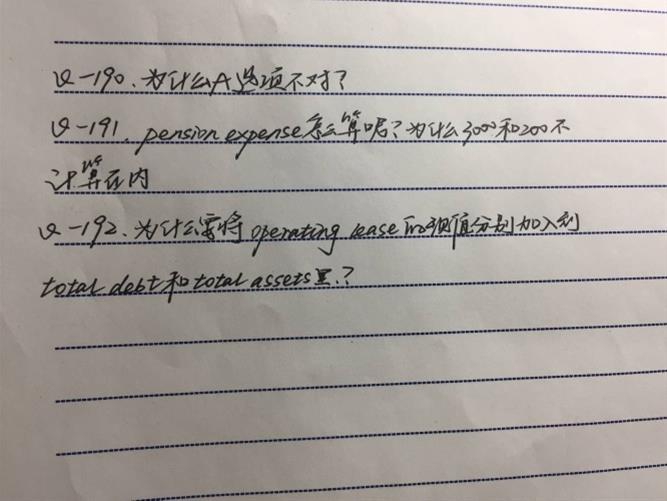 V-190. 为什么A选项不对？
V-191. pension expense怎么算呢？为什么3000和200不
计算在内
V-192. 为什么要将operating lease的现值分别加入到
total debt和total assets里？